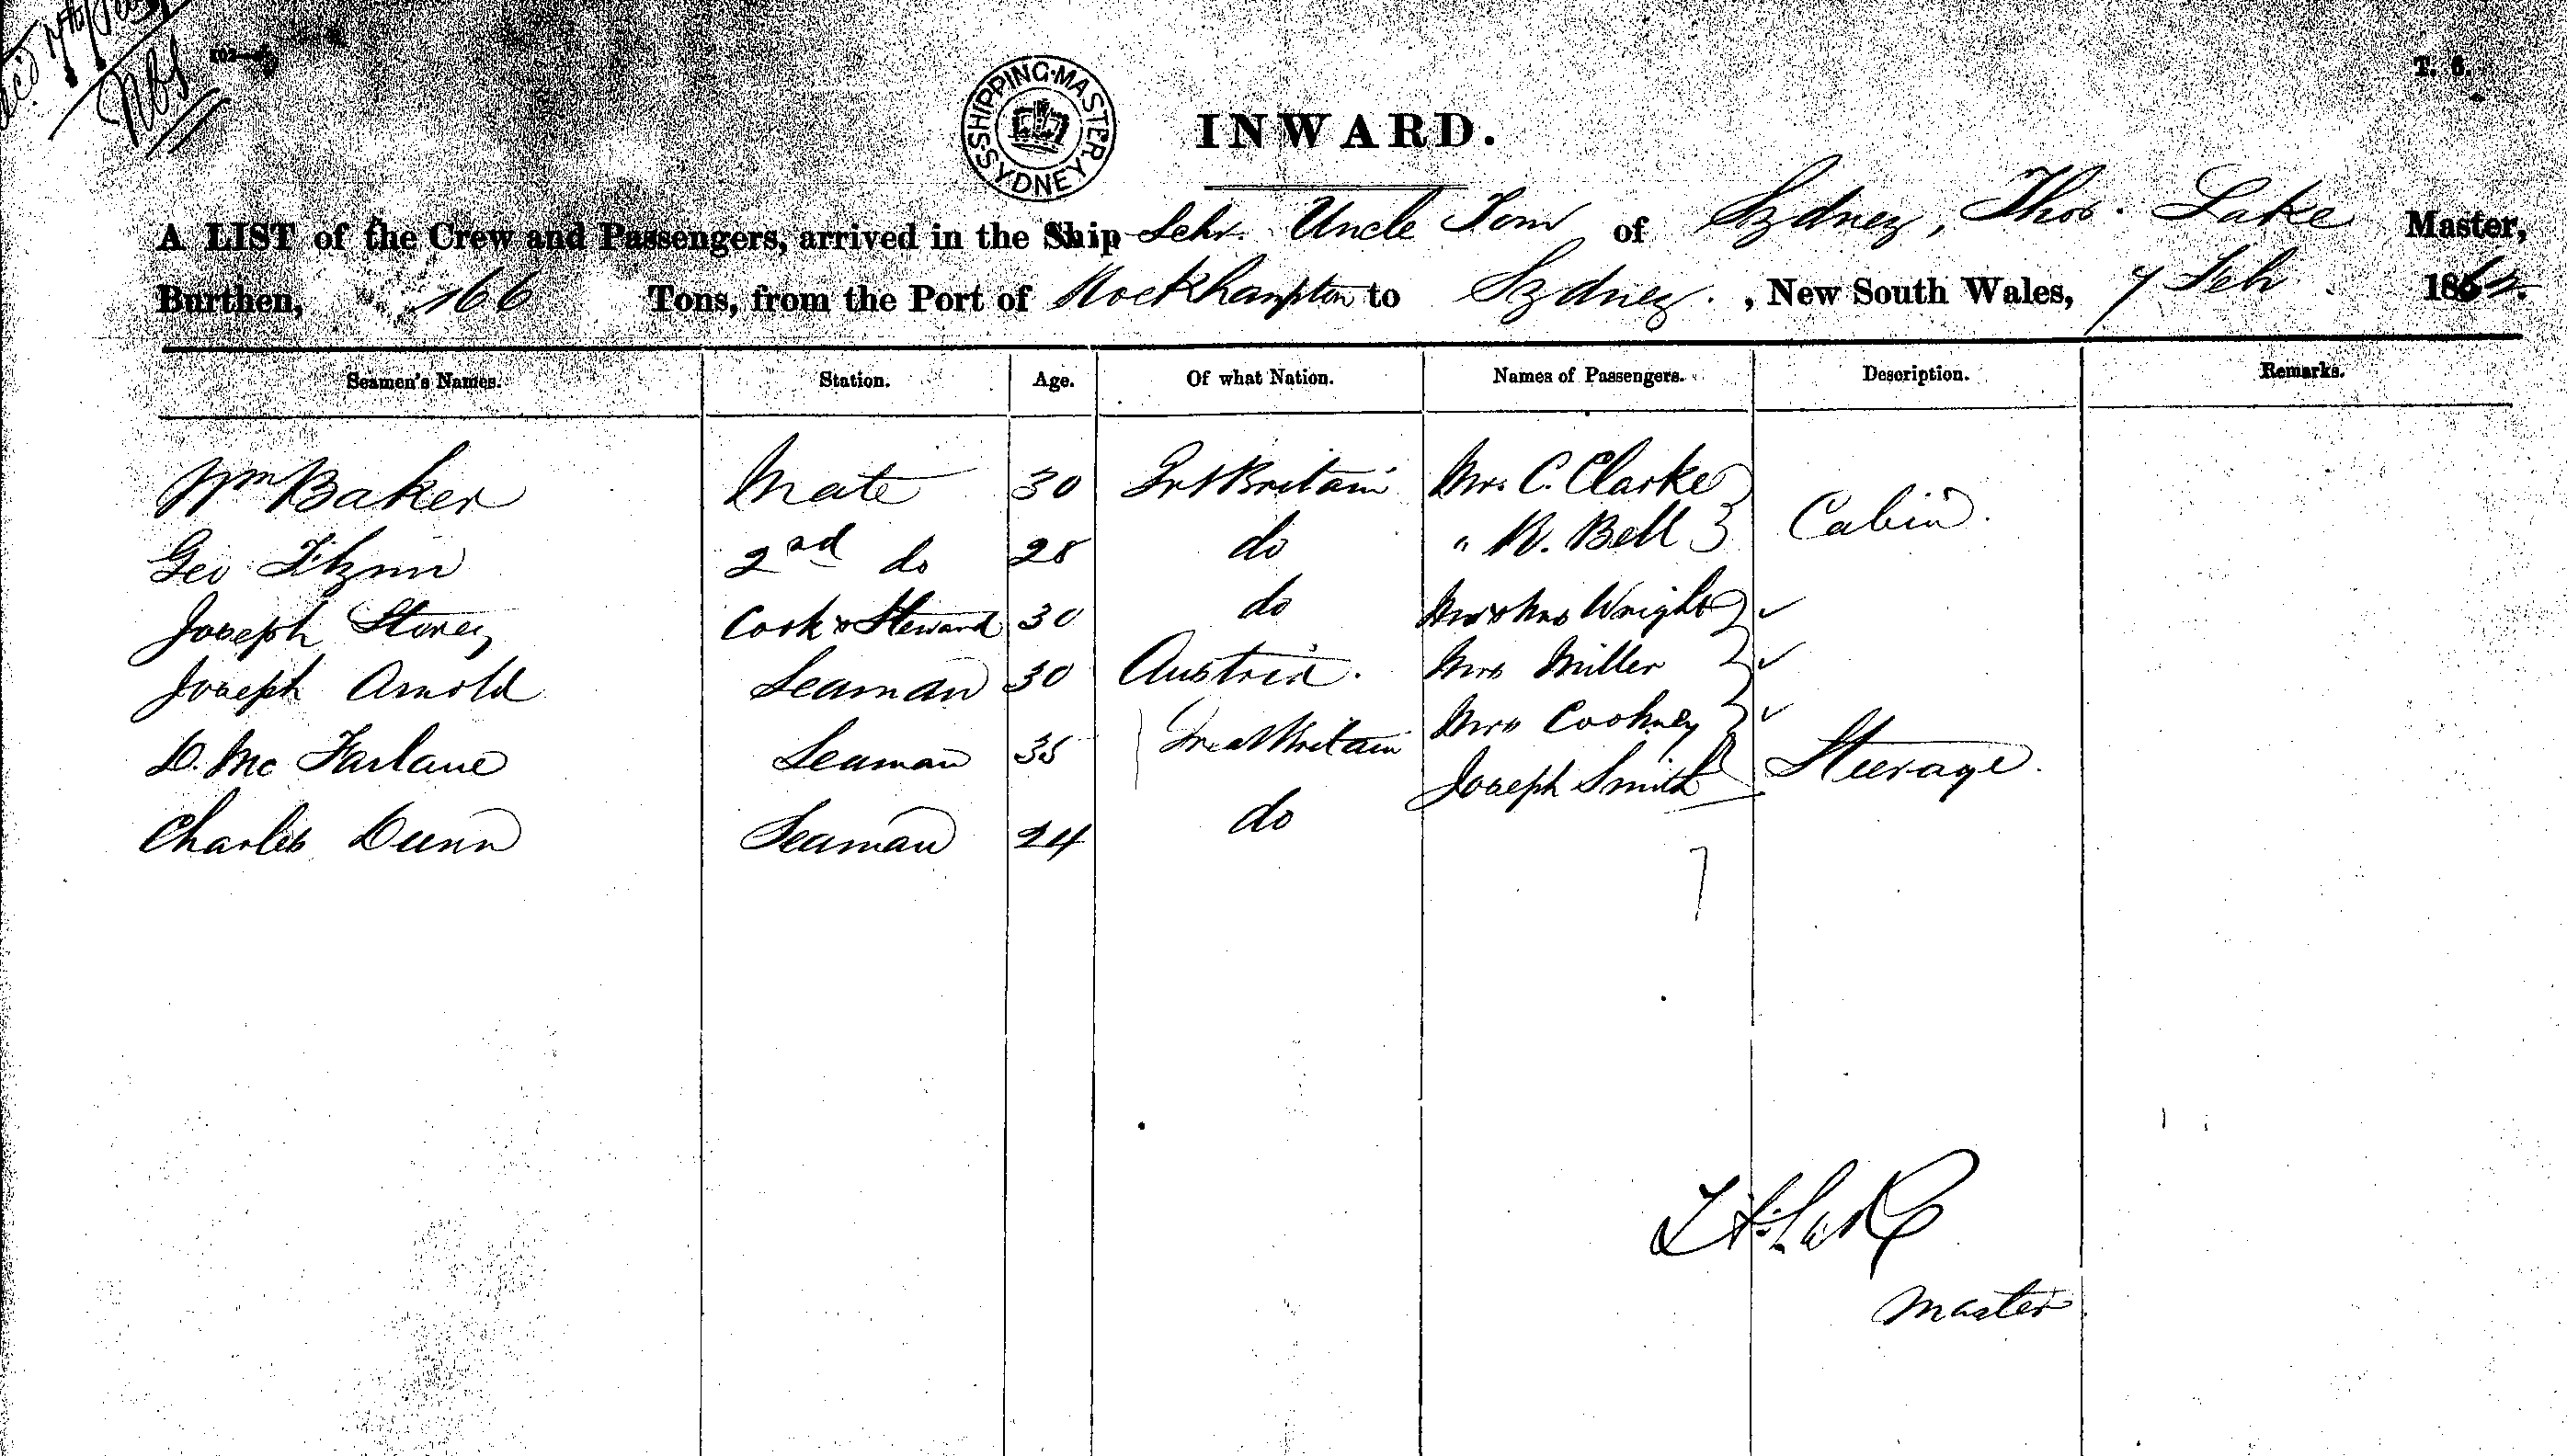 T. 6.
SHIPPING MASTER SYDNEY
INWARD.
A LIST of the Crew and Passengers, arrived in the Ship Schr. Uncle Tom of Sydney, Thos. Lake Master,
Burthen, 166 Tons, from the Port of Rockhampton to Sydney. , New South Wales, 7 Feb 186
Seamen's Names. Station. Age. Of what Nation. Names of Passengers. Description. Remarks.
Wm Baker Mate 30 Grt Britain Mr. C. Clarke
Cabin.
Geo 2nd do 28 do " R. Bell
Joseph Storey Cook & Steward 30 do Mr & Mrs Wright
Joseph Arnold Seaman 30 Austria. Mrs Miller
Mrs
D. Mc Farlane Seaman 35 Great Britain Joseph Smith Steerage.
Charles Dunn Seaman 24 do
7
Lake
Master